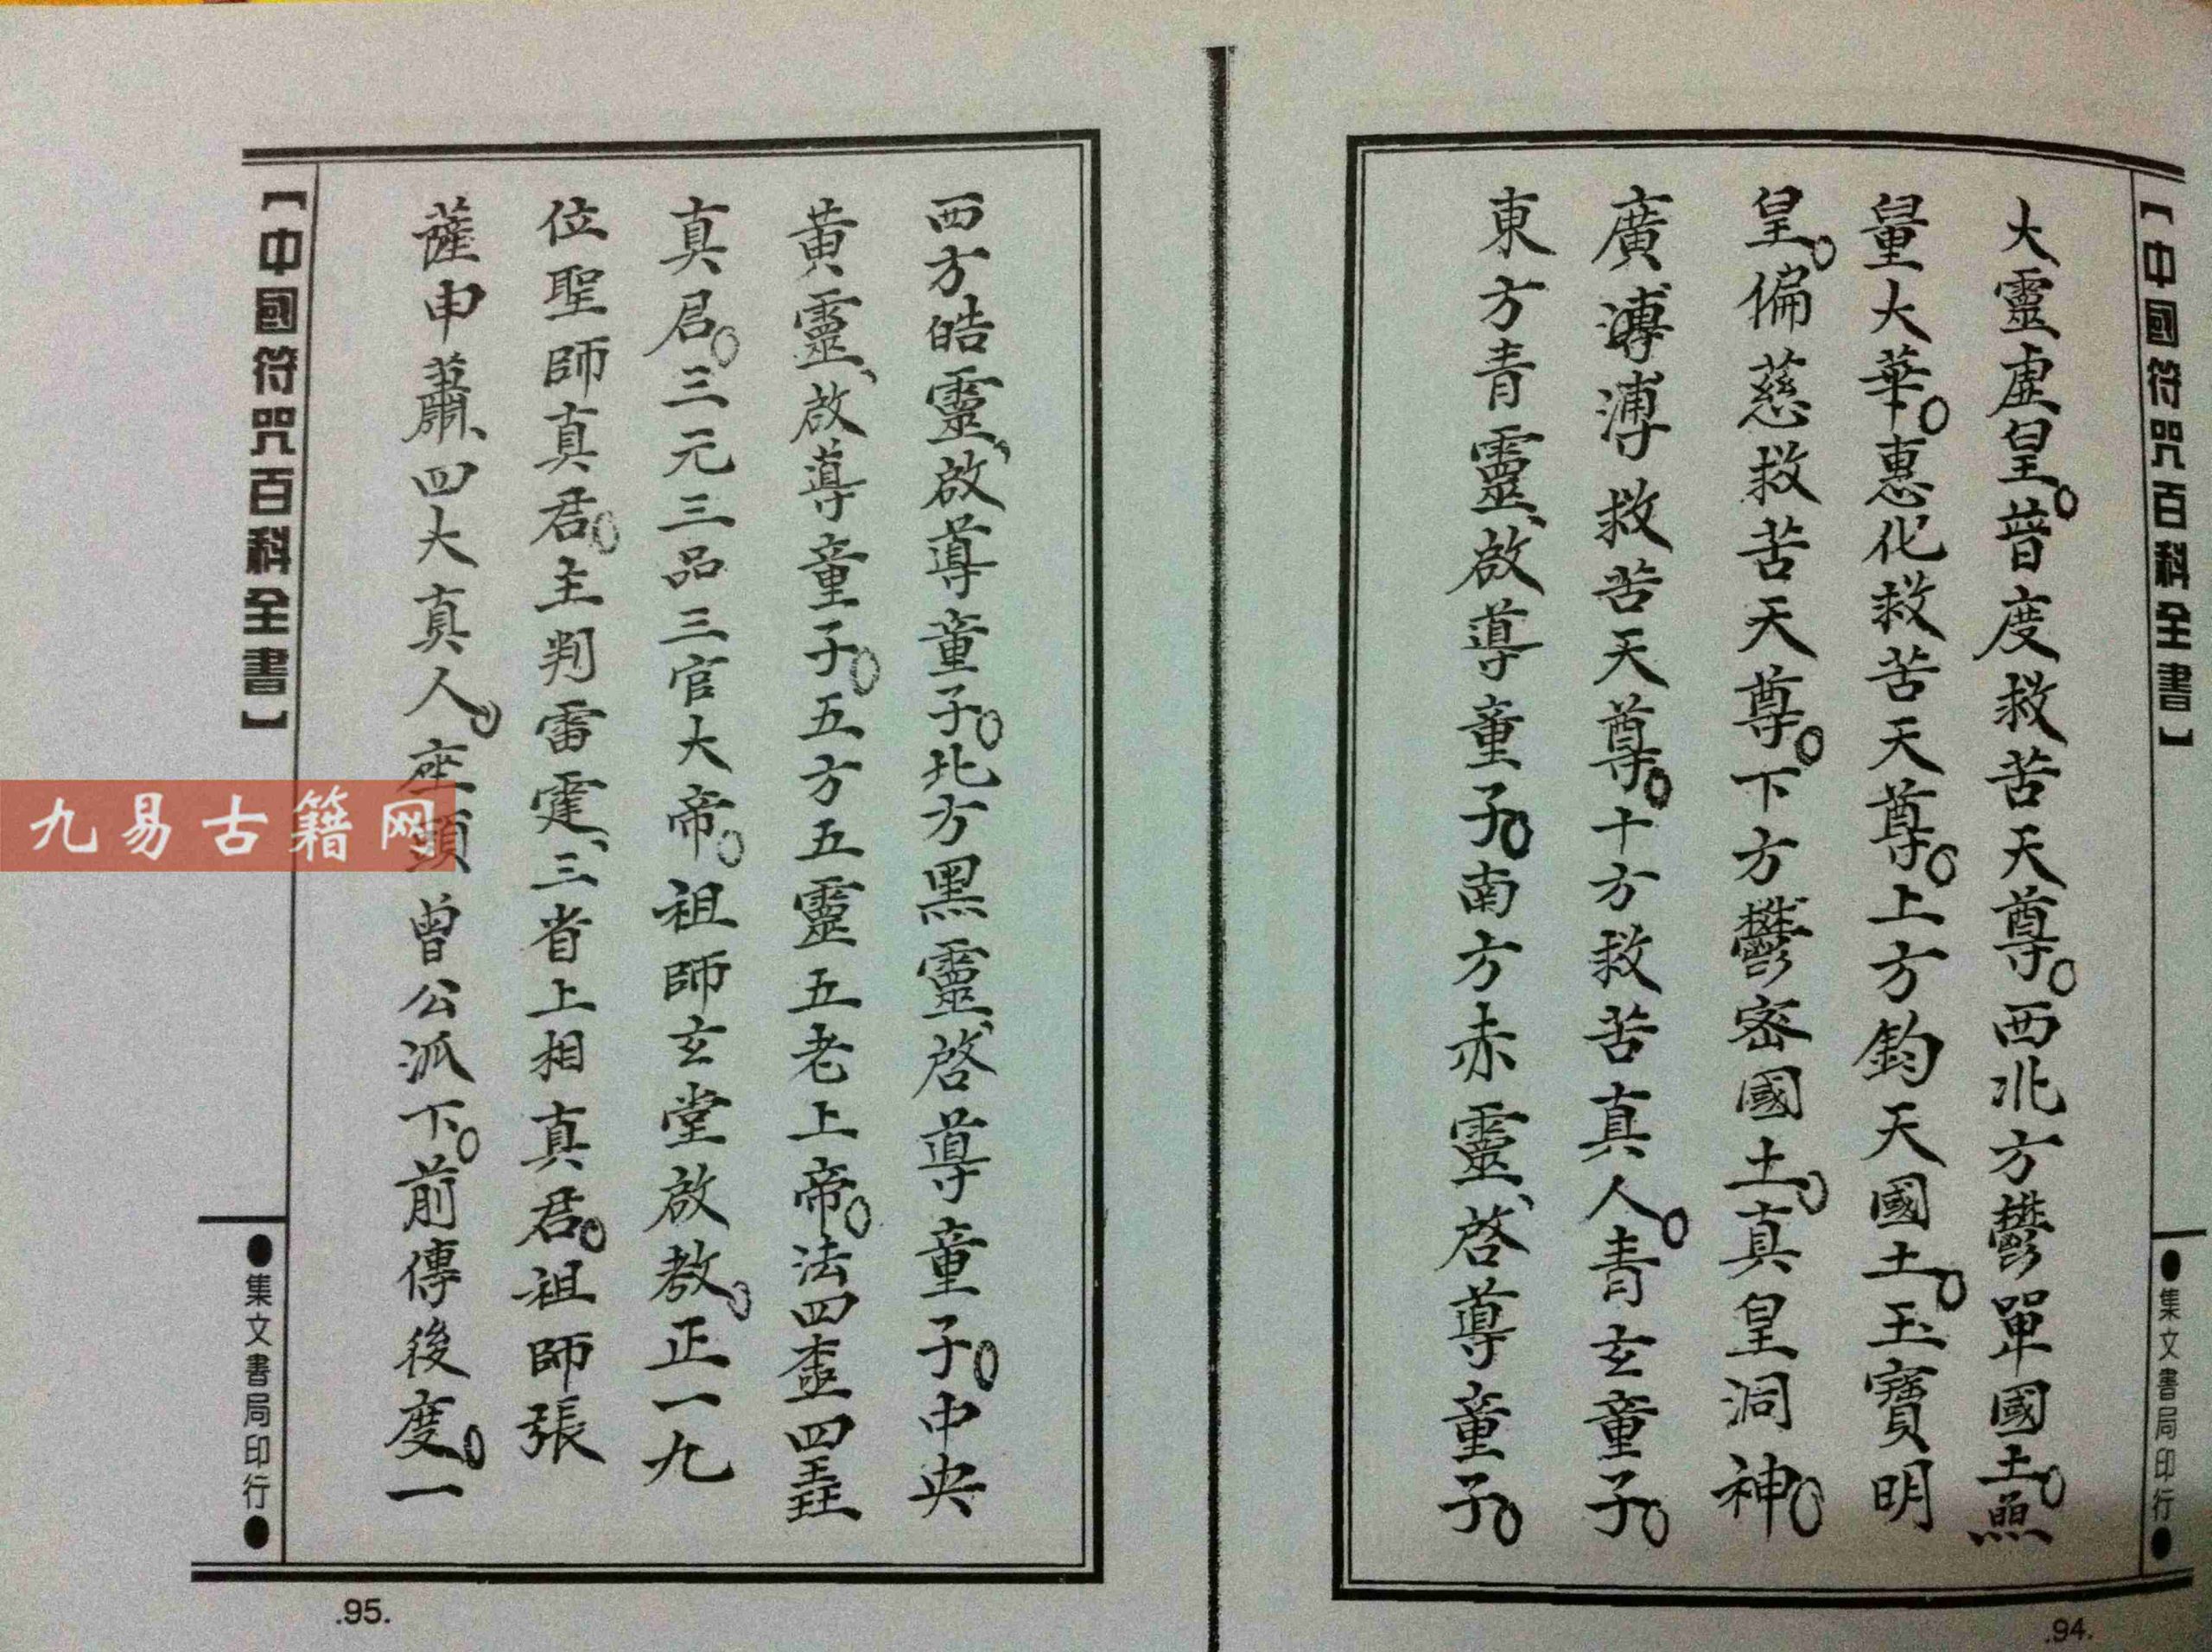 【中國符咒百科全書】
●集文書局印行●
大靈虛皇。普度救苦天尊。西北方鬱單國土。無
量大華。惠化救苦天尊。上方鈞天國土。玉寶明
皇。偏慈救苦天尊。下方鬱密國土。真皇洞神。
廣溥溥救苦天尊。十方救苦真人。青玄童子。
東方青靈、啟導童子。南方赤靈、啓導童子。
.94.
西方皓靈、啟導童子。北方黑靈、啓導童子。中央
黃靈、啟導童子。五方五靈五老上帝。法四
真君。三元三品三官大帝。祖師玄堂啟教。正一九
位聖師真君。主判雷霆、三省上相真君。祖師張
薩申蕭、四大真人。座頭曾公派下。前傳後度。一
【中國符咒百科全書】
●集文書局印行●
.95.
九易古籍网